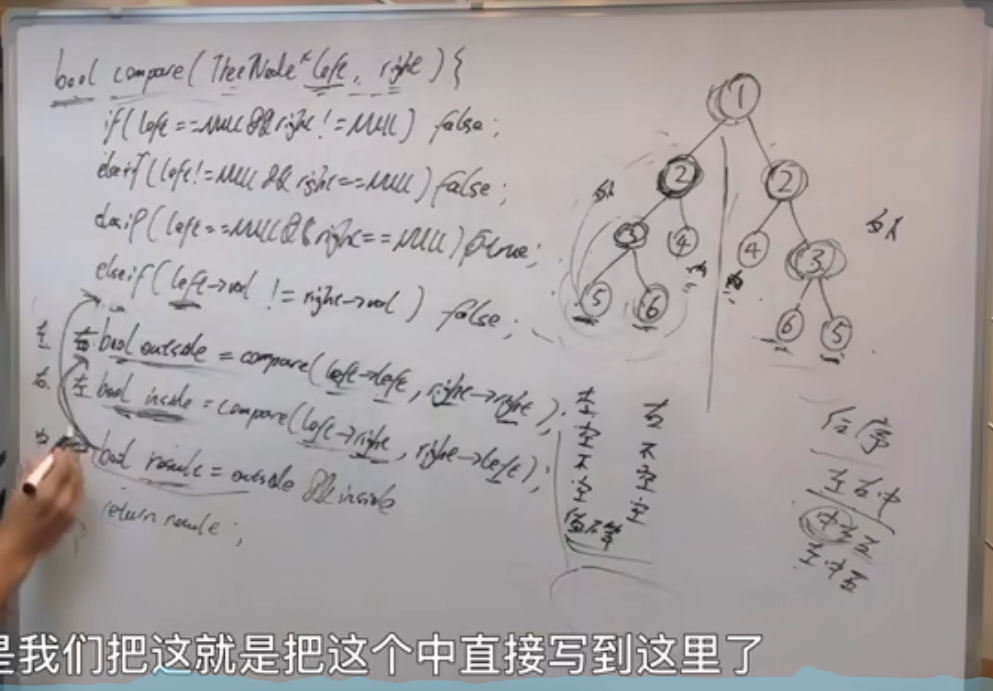 bool compare(TreeNode* left, right) {
if(left==NULL && right!=NULL) false;
elseif(left!=NULL && right==NULL) false;
elseif(left==NULL && right==NULL) true;
elseif(left->val != right->val) false;
左 右 bool outside = compare(left->left, right->right);
右 左 bool inside = compare(left->right, right->left);
中 bool result = outside && inside
return result;
1
2 2
3 4 4 3
5 6 6 5
外 外
内 内
左 右
空 不
不 空
空 空
值不等
后序
左右中
中左右
左中右
是我们把这就是把这个中直接写到这里了